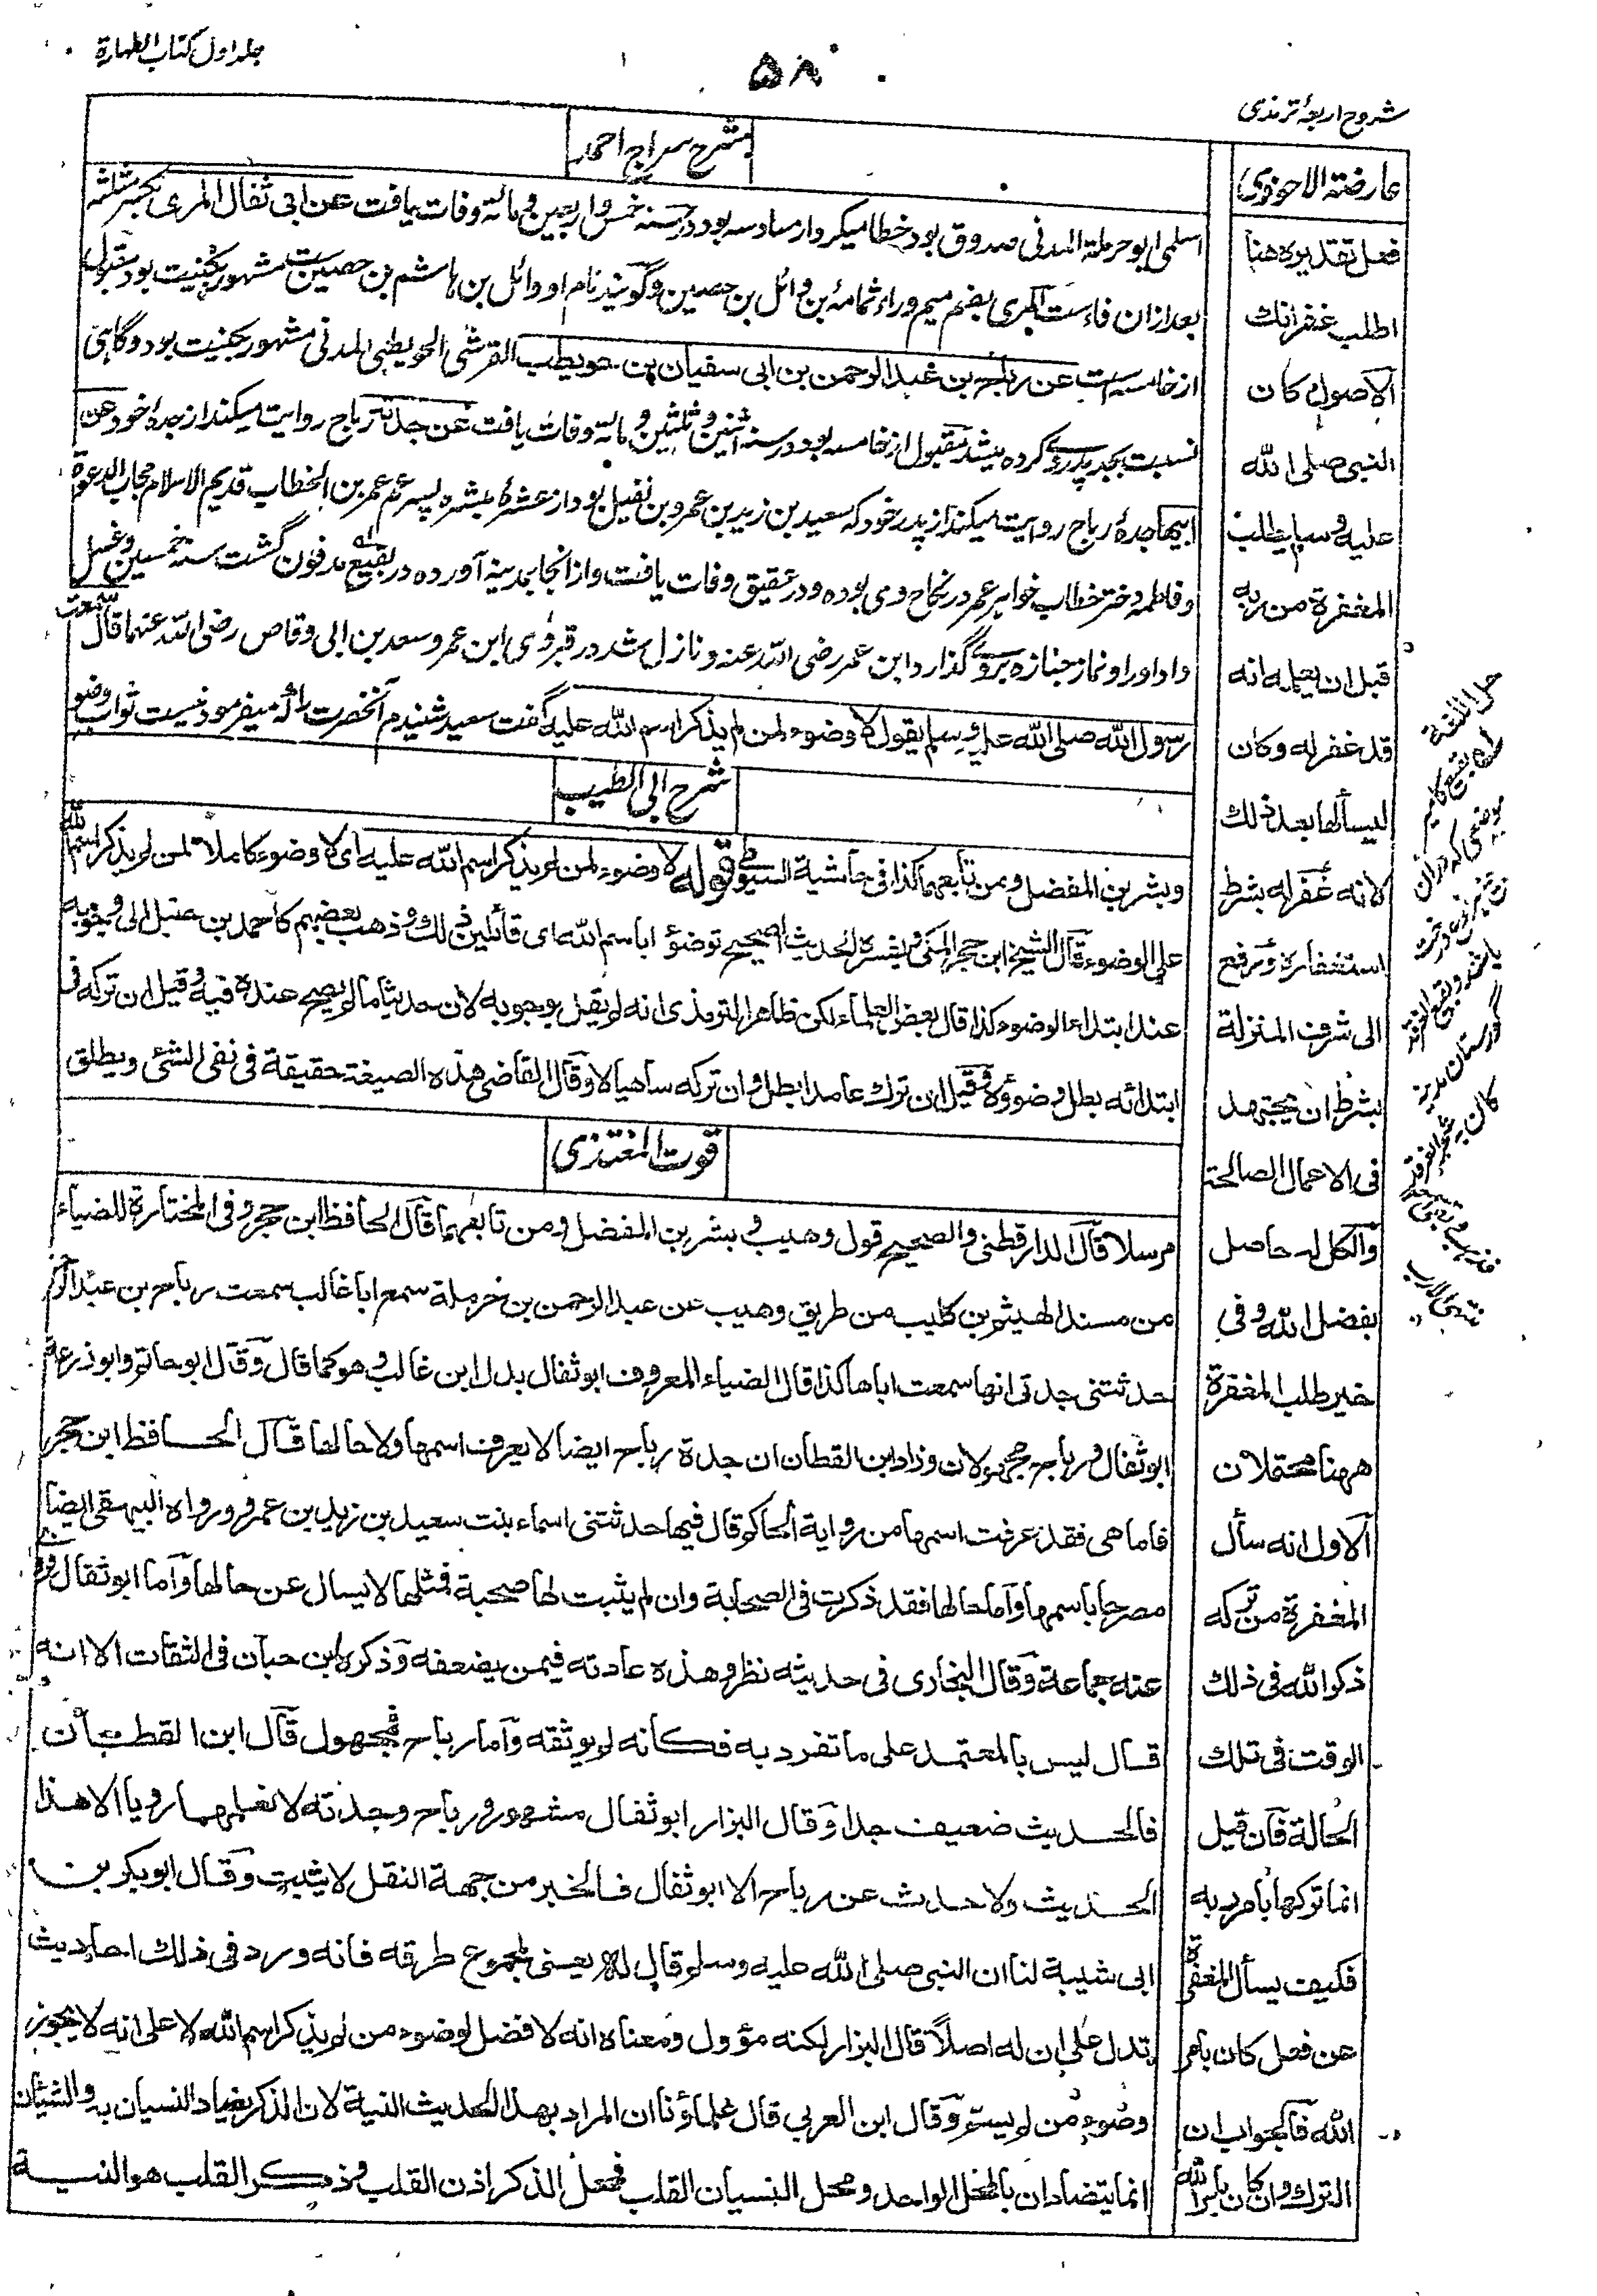 شروح اربعۂ ترمذی
۵۸
جلد اول کتاب الطهارة
عارضة الاحوذی
فعل تقدیره هنا
اطلب غفرانك
الاصول کان
النبی صلی الله
علیه وسلم یطلب
المغفرة من ربه
قبل ان یعلمه انه
قد غفر له وکان
لیسألها بعد ذلك
لانه غفر له بشرط
استغفاره ورفع
الی شرف المنزلة
بشرط ان یجتهد
فی الاعمال الصالحة
والکل له حاصل
بفضل الله وفی
خیر طلب المغفرة
ههنا محتملان
الاول انه سأل
المغفرة من ترکه
ذکر الله فی ذلك
الوقت فی تلك
الحالة فان قیل
انما ترکها بامر ربه
فکیف یسأل المغفرة
عن فعل کان بامر
الله فالجواب ان
الترك وان کان بامر الله
شرح سراج احمد
اسلمی ابو حرملة المدنی صدوق بود خطا میکرد از سادسه بود در سنه خمس واربعین و مائة وفات یافت عن ابی ثفال المری بکسر مثلثه
بعد ازان فاء ست المری بضم میم وراء ثمامه بن وائل بن حصین وگویند نام او وائل بن هاشم بن حصین ست مشهور بکنیت بود مقبول
از خامسه است عن رباح بن عبد الرحمن بن ابی سفیان بن حویطب القرشی الحویطبی المدنی مشهور بکنیت بود وگاهی
نسبت بجد پدر وے کرده میشد مقبول از خامسه بود در سنه اثنین وثلثین و مائة وفات یافت عن جدته رباح روایت میکند از جدهٔ خود عن
ابیها جدهٔ رباح روایت میکند از پدر خود که سعید بن زید بن عمرو بن نفیل بود از عشرهٔ مبشره پسر عم عمر بن الخطاب قدیم الاسلام مجاب الدعوة
وفاطمه دختر خطاب خواهر عمر در نکاح وی بوده ودر عقیق وفات یافت واز انجا بمدینه آورده در بقیع مدفون گشت سنه خمسین وغسل
داد او را ونماز جنازه بروے گذارد ابن عمر رضی الله عنه ونازل شد در قبر وی ابن عمر وسعد بن ابی وقاص رضی الله عنهما قال سمعت
رسول الله صلی الله علیه وسلم یقول لا وضوء لمن لم یذکر اسم الله علیه گفت سعید شنیدم آنحضرت را که میفرمود نیست ثواب وضو
شرح ابی الطیب
وبشر بن المفضل ومن تابعهما کذا فی حاشیة السیوطی قوله لا وضوء لمن لم یذکر اسم الله علیه ای لا وضوء کاملا لمن لم یذکر اسم الله
علی الوضوء قال الشیخ ابن حجر المکی ویفسره الحدیث الصحیح توضؤا باسم الله ای قائلین ذلك وذهب بعضهم کاحمد بن حنبل الی وجوبه
عند ابتداء الوضوء کذا قال بعض العلماء لکن ظاهر الترمذی انه لم یقل بوجوبه لان حدیثا ما لم یصح عنده فیه وقیل ان ترکه فی
ابتدائه بطل وضوؤه وقیل ان ترك عامدا بطل وان ترکه ساهیا لا وقال القاضی هذه الصیغة حقیقة فی نفی الشئ ویطلق
قوت المغتذی
مرسلا قال الدارقطنی والصحیح قول وهیب وبشر بن المفضل ومن تابعهما قال الحافظ ابن حجر وفی المختارة للضیاء
من مسند الهیثم بن کلیب من طریق وهیب عن عبد الرحمن بن حرملة سمع ابا غالب سمعت رباح بن عبد الرحمن
حدثتنی جدتی انها سمعت اباها کذا قال الضیاء المعروف ابو ثفال بدل ابن غالب وهو کما قال وقال ابو حاتم وابو زرعة
ابو ثفال ورباح مجهولان وزاد ابن القطان ان جدة رباح ایضا لا یعرف اسمها ولا حالها قال الحافظ ابن حجر
فاما هی فقد عرفت اسمها من روایة الحاکم وقال فیها حدثتنی اسماء بنت سعید بن زید بن عمرو ورواه البیهقی ایضا
مصرحا باسمها واما حالها فقد ذکرت فی الصحابة وان لم یثبت لها صحبة فمثلها لا یسال عن حالها واما ابو ثفال فروی
عنه جماعة وقال البخاری فی حدیثه نظر وهذه عادته فیمن یضعفه وذکره ابن حبان فی الثقات الا انه
قال لیس بالمعتمد علی ما تفرد به فکانه لم یوثقه واما رباح فمجهول قال ابن القطان
فالحدیث ضعیف جدا وقال البزار ابو ثفال مشهور ورباح وجدته لا نعلمهما رویا الا هذا
الحدیث ولا حدث عن رباح الا ابو ثفال فالخبر من جهة النقل لا یثبت وقال ابو بکر بن
ابی شیبة لنا ان النبی صلی الله علیه وسلم قاله یعنی لمجموع طرقه فانه ورد فی ذلك احادیث
تدل علی ان له اصلاً قال البزار لکنه مؤول ومعناه انه لا فضل لوضوء من لم یذکر اسم الله لا علی انه لا یجوز
وضوء من لم یسم وقال ابن العربی قال علماؤنا ان المراد بهذا الحدیث النیة لان الذکر یضاد النسیان به والشیئان
انما یتضادان بالمحل الواحد ومحل النسیان القلب فمحل الذکر اذن القلب وذکر القلب هو النیة
حل اللغة
بقیع کامیر
موضعی که دران
گورستان مدینه
منتهی الارب